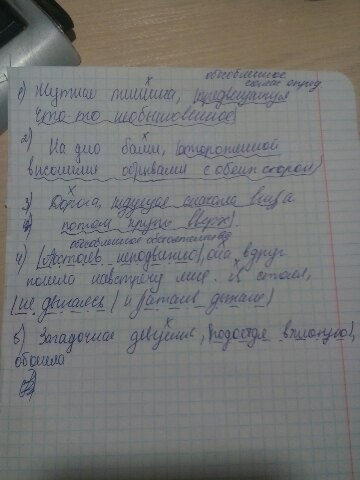 обособленное
соглас опред
1) Жуткая тишина, (предвещающая
что-то необыкновенное)
2)
На дно балки, (отороченной
высокими обрывами с обеих сторон)
3) Дорога, идущая сначала вниз а
потом круто вверх)
обособленное обстоятельство
4) (Постояв неподвижно), она, вдруг
пошла навстречу мне. Я стоял,
(не двигаясь) и (затаив дыхание)
5) Загадочная девушка, (подойдя вплотную),
обошла